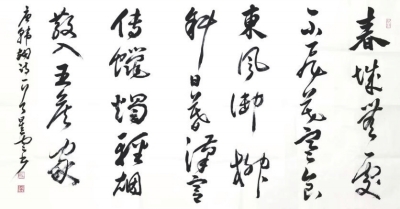 春城無處
不飛花寒食
東風御柳
斜日暮漢宮
傳蠟燭輕烟
散入五侯家
唐韓翃詩一首